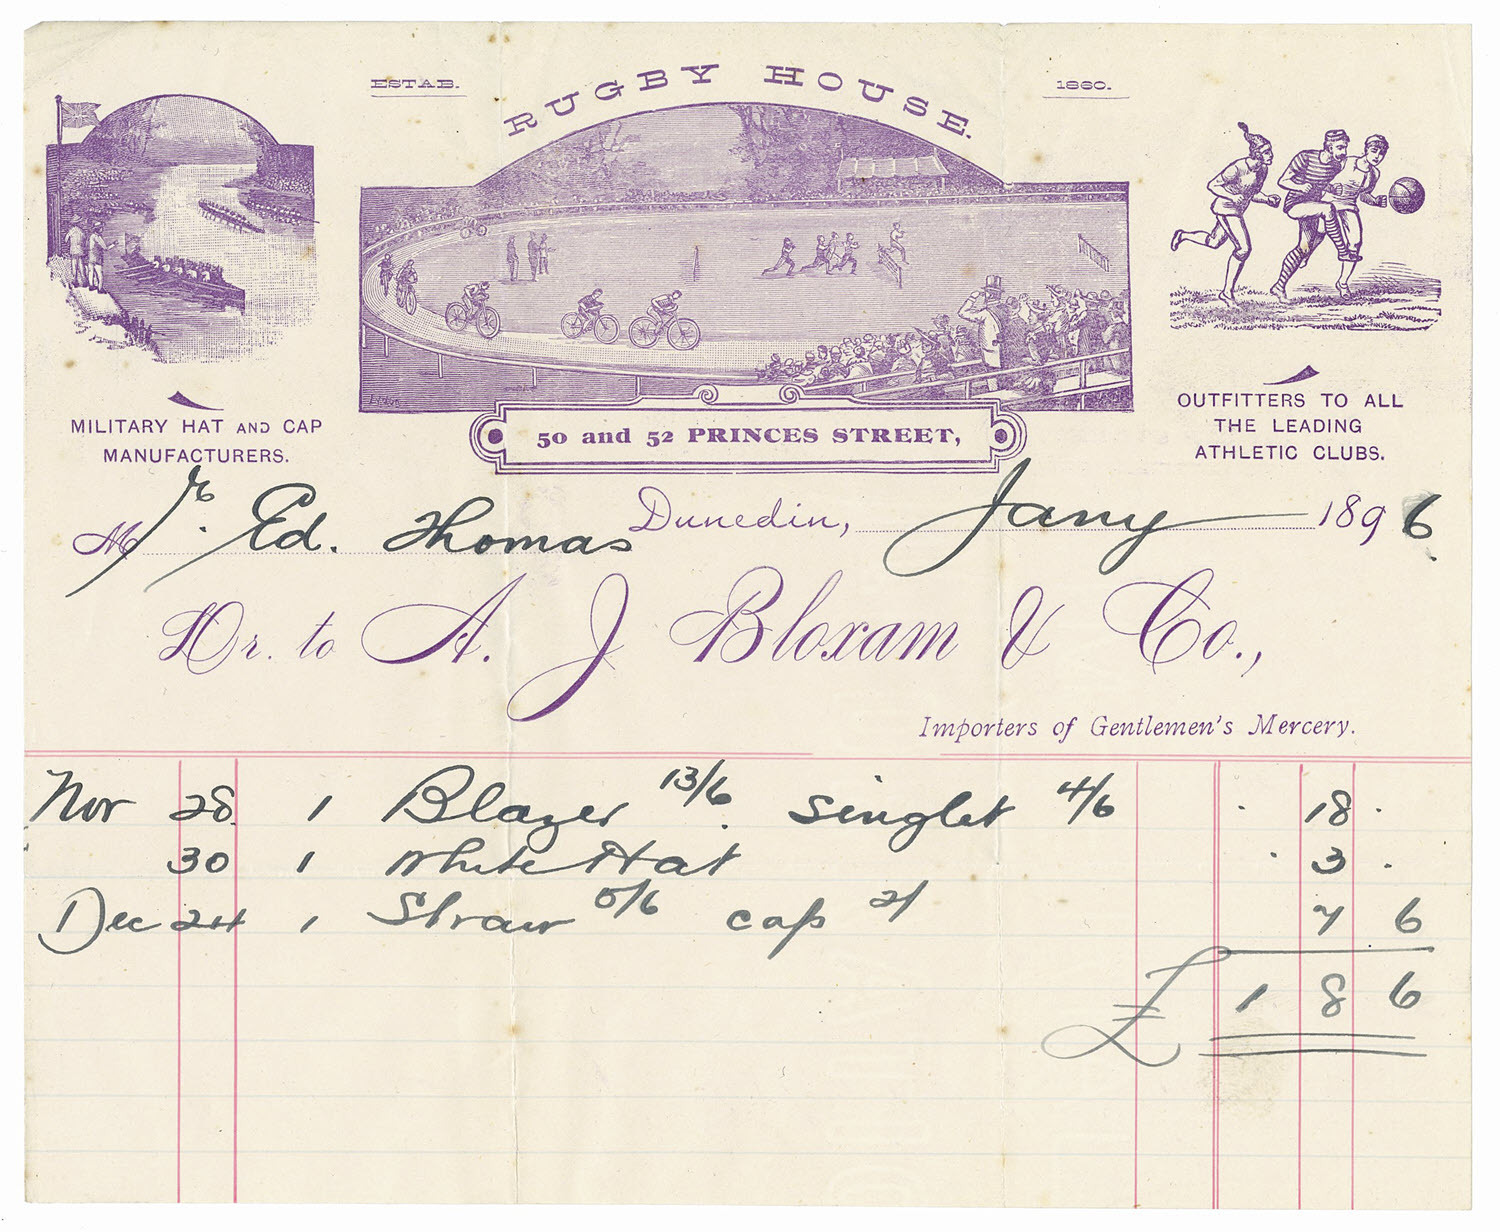 ESTAB. RUGBY HOUSE. 1860.
MILITARY HAT AND CAP
MANUFACTURERS.
50 and 52 PRINCES STREET,
OUTFITTERS TO ALL
THE LEADING
ATHLETIC CLUBS.
Mr. Ed. Thomas Dunedin, Jany 1896.
Dr. to A. J Bloxam & Co.,
Importers of Gentlemen's Mercery.
Nov 28 1 Blazer 13/6. Singlet 4/6 . 18 .
30 1 White Hat . 3 .
Dec 24 1 Straw 5/6 cap 2/ 7 6
£ 1 8 6